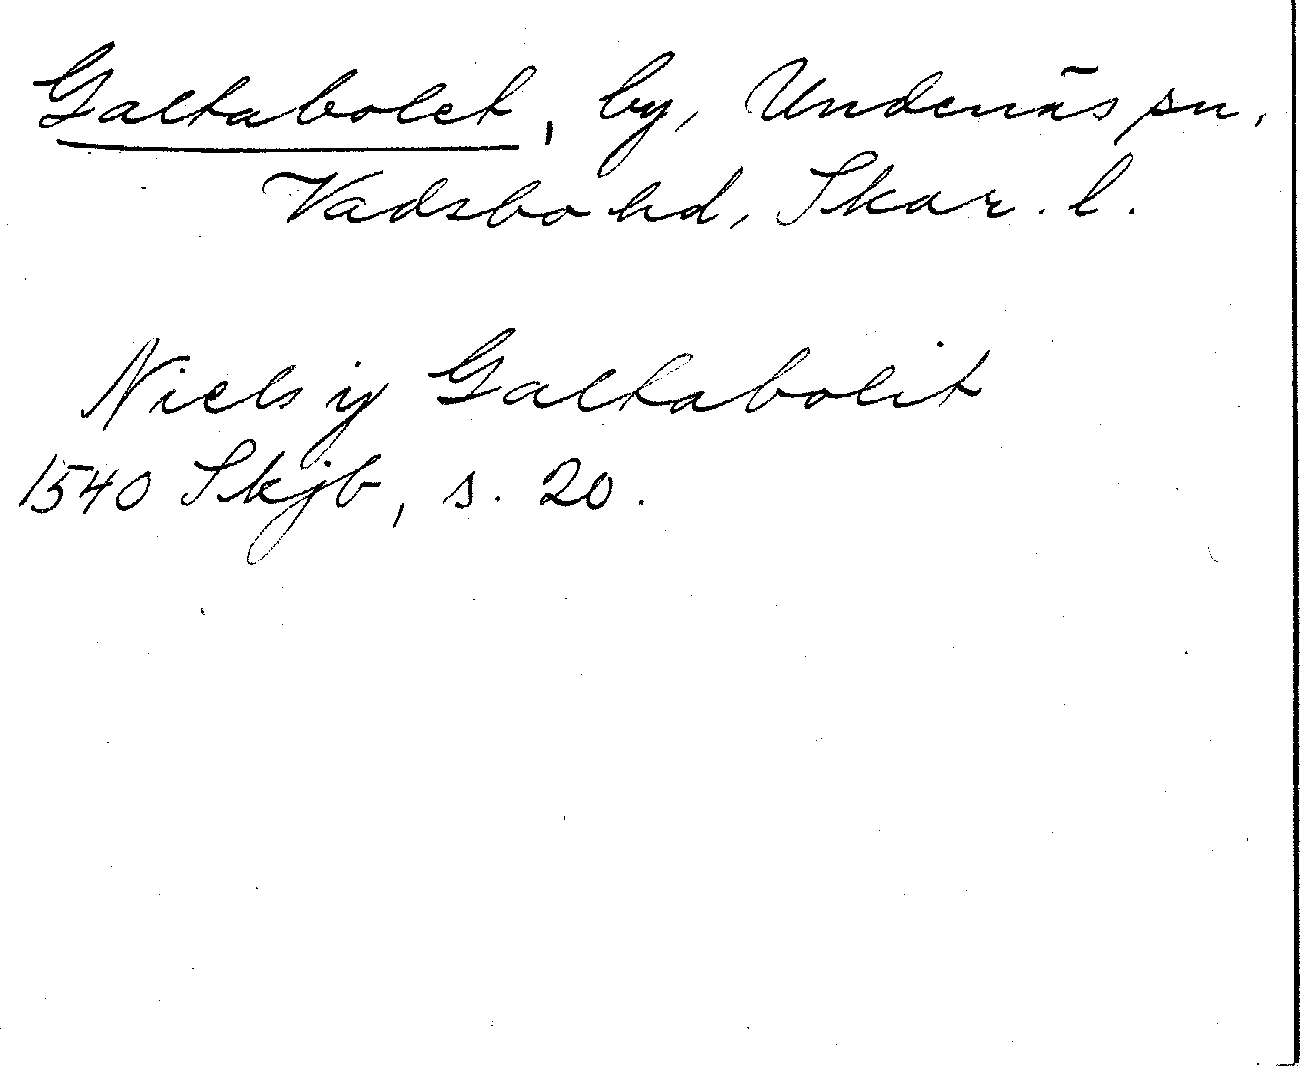 Galtabolet, by, Undenäs sn,
Vadsbo hd, Skar. l.
Niels ij Galtabolit
1540 Skjb, s. 20.